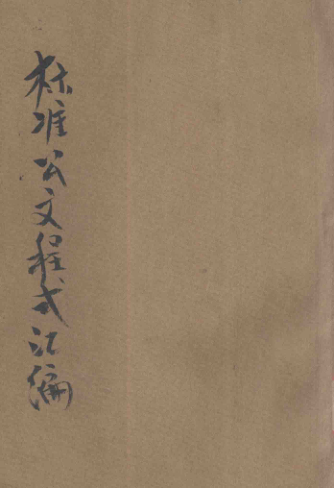 标准公文程式汇编